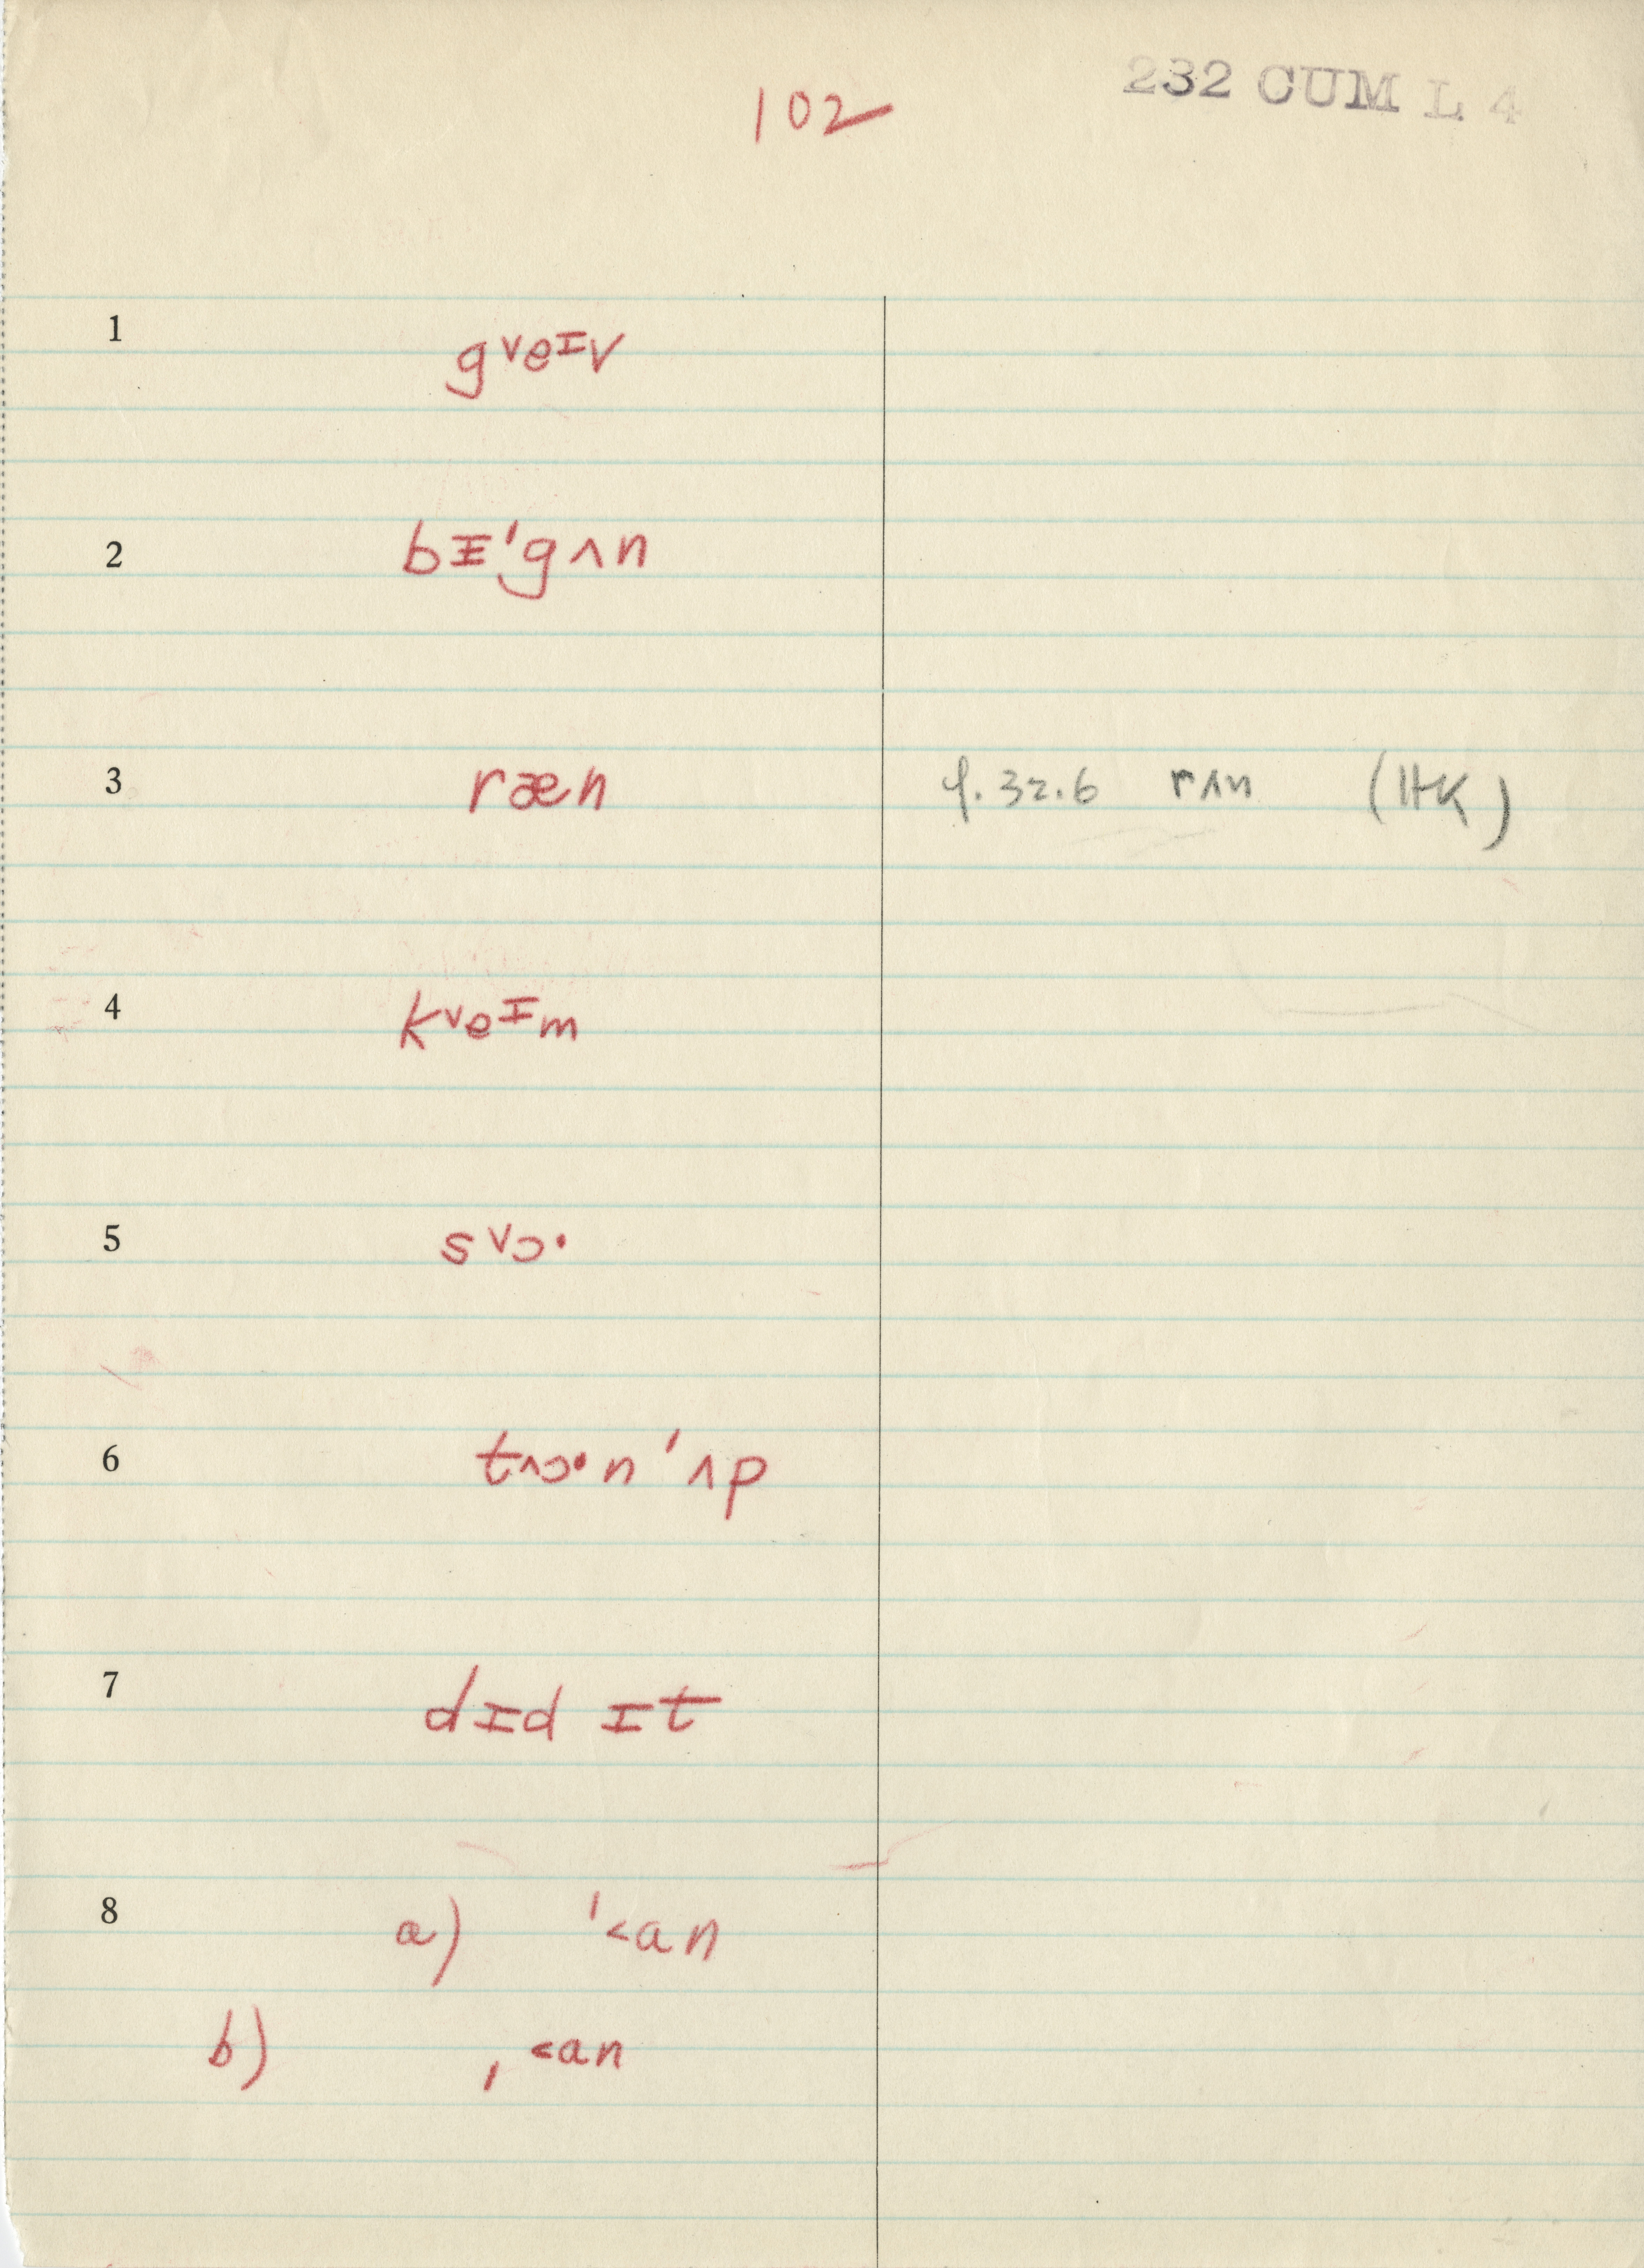 102
232 CUM L 4
1 g˅eɪv
2 bɪ̵'gʌn
3 ræn φ. 32.6 rʌn (HK)
4 k˅eɪm
5 s˅ɔ·
6 t˄ɔ·n 'ʌp
7 dɪd ɪt
8 a) '˂an
b) ˌ ˂an